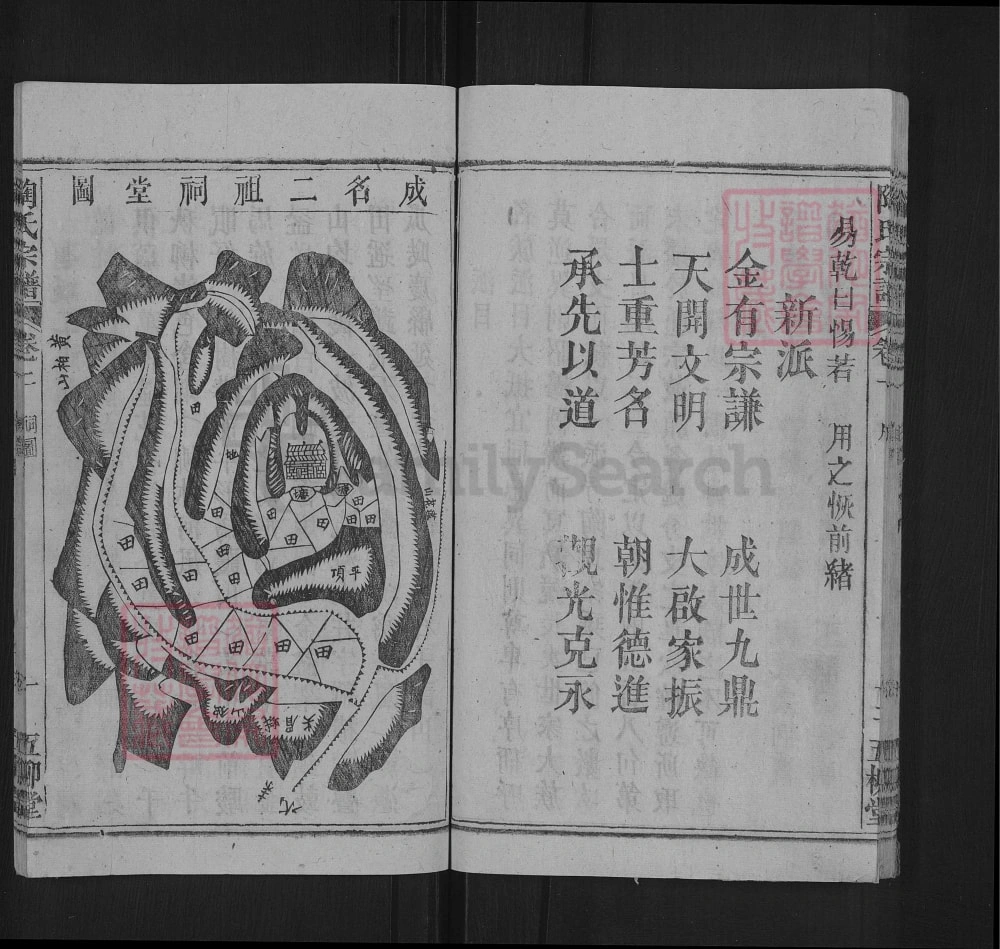 易乾曰惕若 用之恢前緒
新派
金有宗謙 成世九鼎
天開文明 大啟家振
士重芳名 朝惟德進
承先以道 觀光克永
陶氏宗譜 卷一
五柳堂
成名二祖祠堂圖
黃柏山
田
田
田
田
田
田
田
田
田
田
田
田
田
田
塘
平項
陶氏宗譜 卷十 祠圖
一 五柳堂
FamilySearch